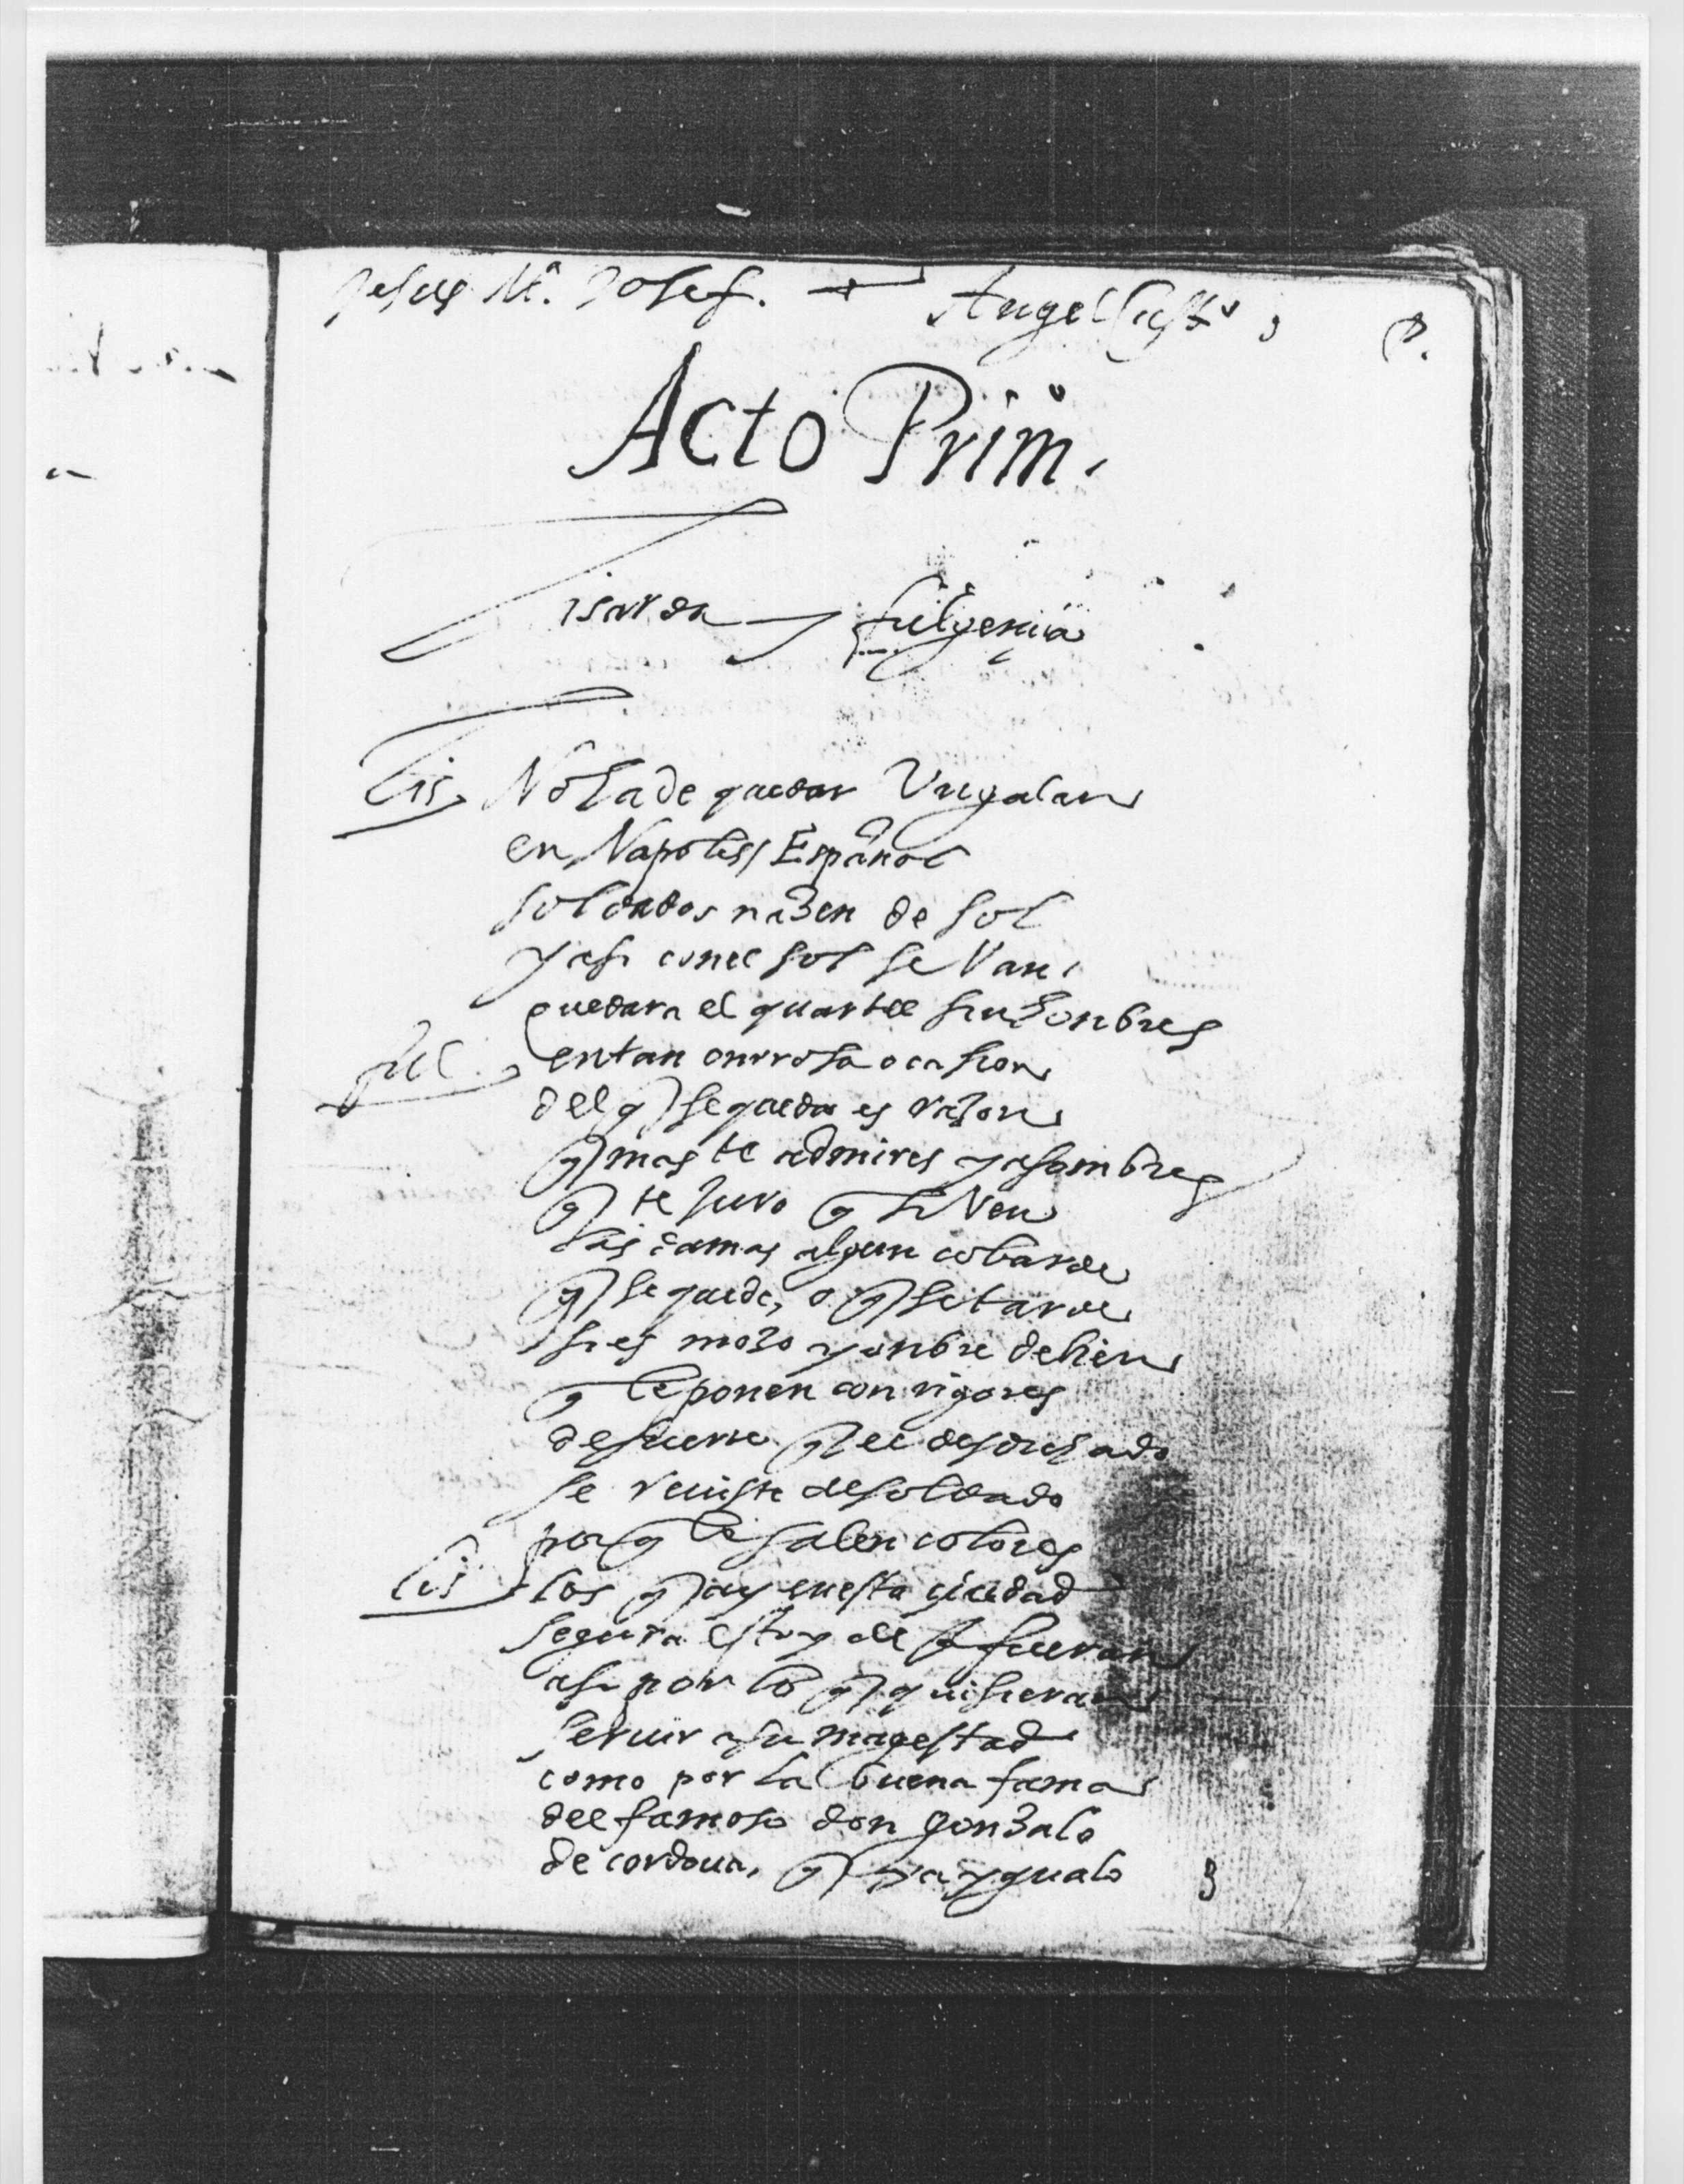 Jesus Mª. Josef. Angel Custº
Acto Primº.
Lisarda y fulgencia
Lis No ha de quedar Vn galan
en Napoles Español
soldados nazen de sol
y asi con el sol se Van
quedara el quartel sin honbres
ful. en tan onrrosa ocasion
del q se queda es razon
q mas te admires y asombres
q te juro q si Ven
las damas algun cobarde
q se quede, o q se tarde
si es mozo y onbre de bien
q le ponen con rigores
de suerte q el desdichado
se reuiste de soldado
porq le salen colores
Lis los q ay en esta ciudad
segura estoy de q fueran
asi por lo q quisieran
seruir a su magestad
como por la buena fama
del famoso don gonzalo
de cordoua, q ya ygualo